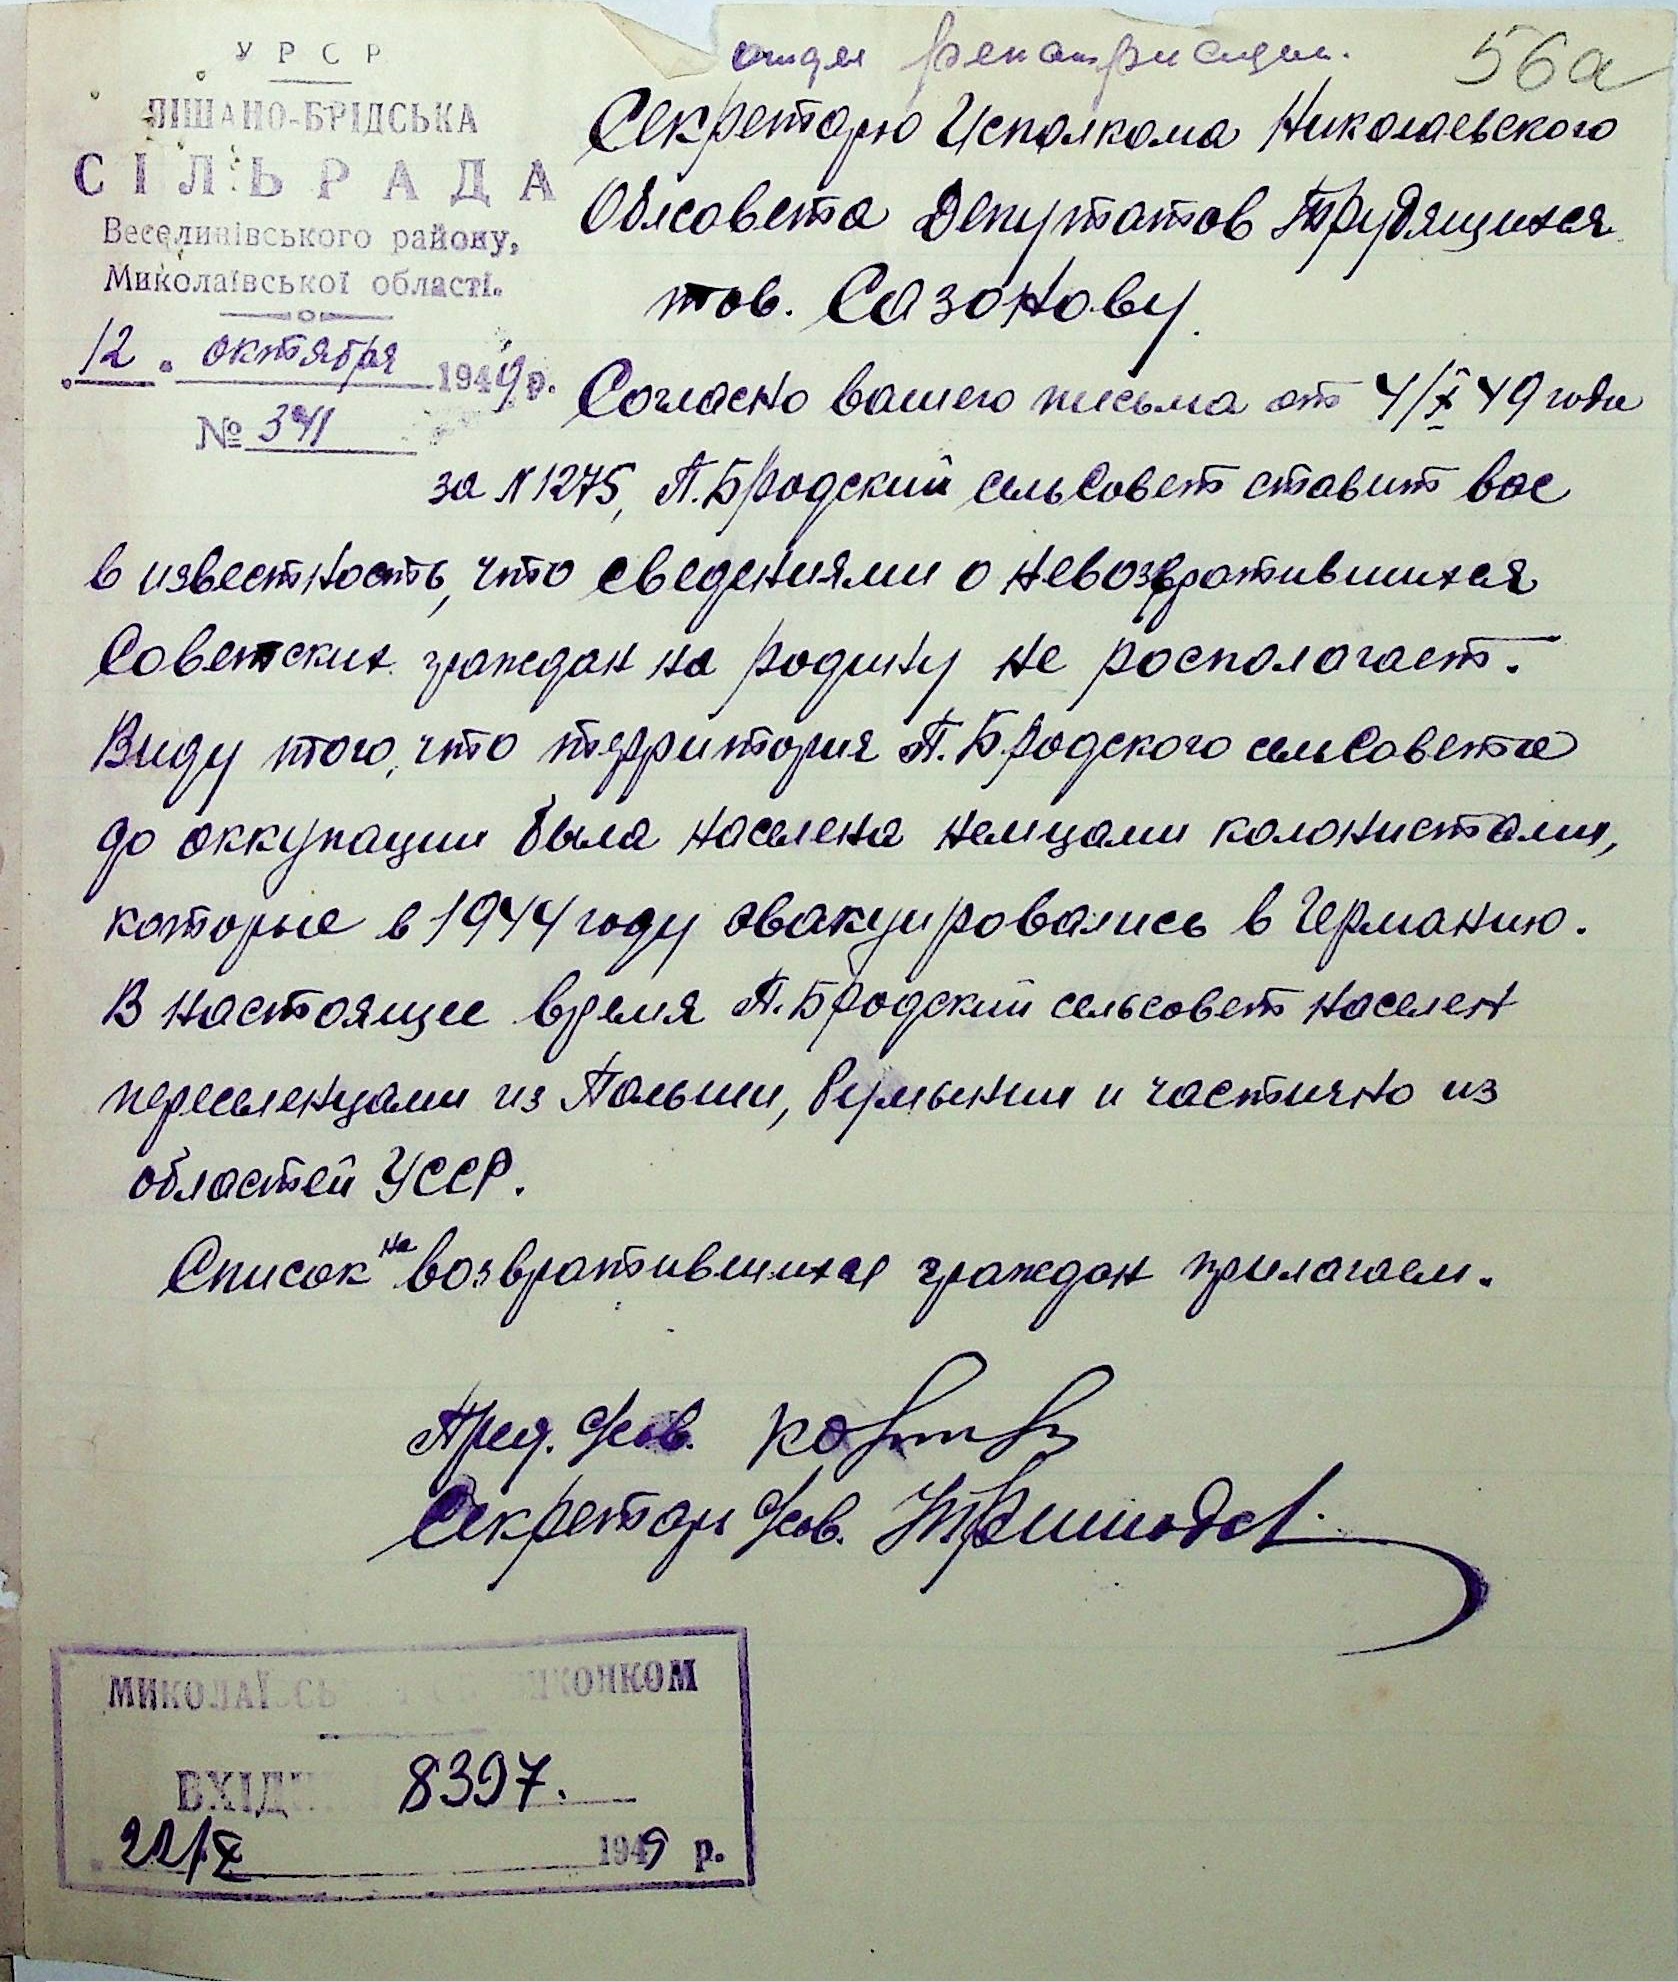 отдел репатриации.
56а
УРСР
ПІЩАНО-БРІДСЬКА
СІЛЬРАДА
Веселинівського району,
Миколаївської області.
12. октября 1949 р.
№ 341
Секретарю Исполкома Николаевского
Облсовета Депутатов Трудящихся
тов. Сазонову.
Согласно вашего письма от 4/X 49 года
за N 1275, П.Бродский сельсовет ставит вас
в известность, что сведениями о невозвратившихся
Советских граждан на родину не располагает.
Виду того, что территория П.Бродского сельсовета
до оккупации была населена немцами колонистами,
которые в 1944 году эвакуировались в Германию.
В настоящее время П.Бродский сельсовет населен
переселенцами из Польши, Румынии и частично из
областей УССР.
Список не возвратившихся граждан прилагаем.
Пред. с/сов.
Секретарь с/сов.
МИКОЛАЇВСЬ ВИКОНКОМ
ВХІД 8397.
22/X 1949 р.